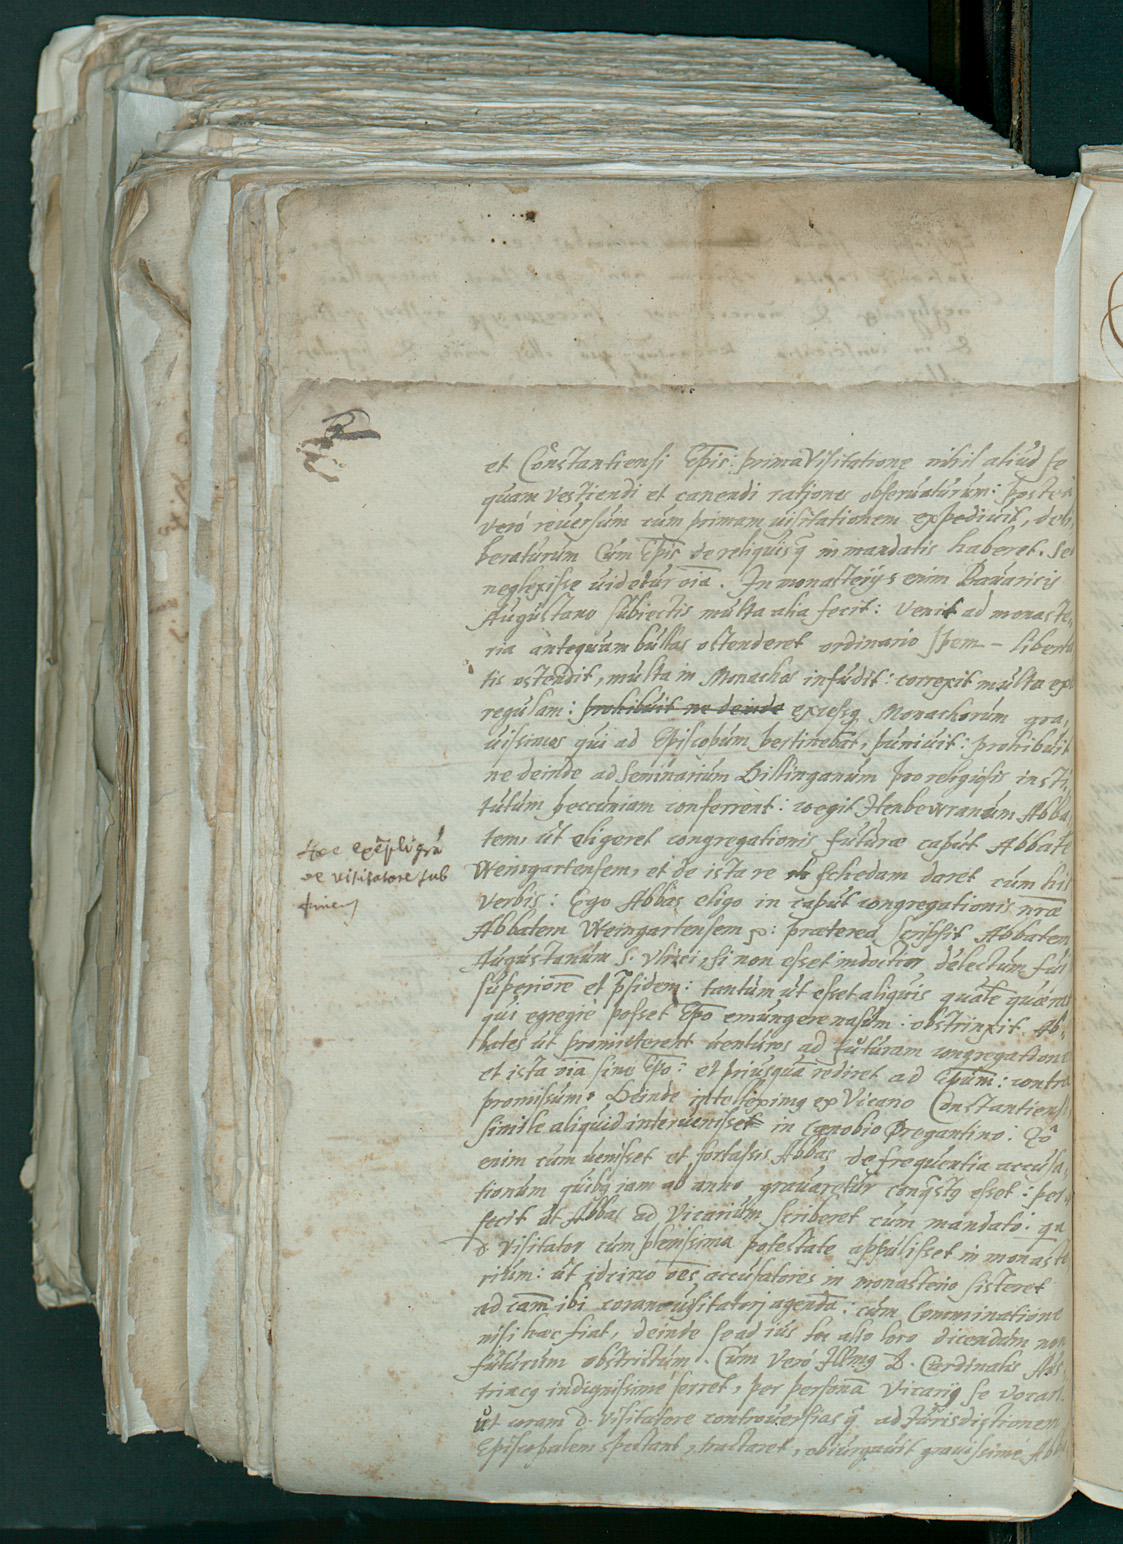 et Constantiensi Epis: prima Visitatione nihil aliud se
quam vestiendi et canendi rationes obseruaturum: postea
veró reuersum cúm primam uisitationem expediuit, deli,
beraturum Cúm Epis de reliquis q̃ in mandatis haberet. Se
neglexisse uidetur oīa. In monasterijs enim Bauaricis
Augustano subiectis múlta alia fecit: Venit ad monaste,
ria antequam búllas ostenderet ordinario
tis ostendit, múlta in Monachos infudit: correxit múlta ex
regúlam: prohibúit ne deinde excessq Monachorúm gra,
uissimos qui ad Episcopúm pertinebāt, púniuit: prohibúit
ne deinde ad seminariúm Dillinganúm pro religiosis insti,
tutúm peccúniam conferrent: coegit Abba,
tem, út eligeret congregationis futuræ capút Abbatē
Weingartensem, et de ista re schedam daret cúm his
verbis: Ego Abbas eligo in capút congregationis nr̄æ
Abbatem Weingartensem p: præterea scripsit Abbatem
Augústanúm S. Vlrici, si non esset indoctior delectúm fui
súperiorē et p̄sidem: tantúm út esset aliquis quærat
qui egregiè posset Ep̄o emúngere nasúm: obstrinxit Ab,
bates út promitterent uenturos ad fúturam congregationē
et ista oīa sine Ep̄o: et priúsquā rediret ad Ep̄úm: contra
promissúm. Deinde intelleximq ex Vicario Constantiensi
simile aliquid interuenisset in cænobio Bregantino: Eò
enim cúm uenisset et fortassis Abbas de frequentia accúsa,
tionúm quibq iam ab anno grauaretúr conq̃stq esset: per,
fecit út Abbas ad Vicariúm scriberet cúm mandato: qa
D. Visitator cúm plenissima potestate appúlisset in monaste
riúm: út idcirco oēs accúsatores in monasterio sisteret
ad cām ibi coram uisitatori agendā: cúm Comminatione
nisi hæc fiat, deinde se ad iús hoc alio loco dicendúm non
fútúrúm obstrictúm. Cúm veró Illmq D. Cardinalis Aús
triacq indignissimè ferret, per personā Vicarij se vocari
út coram D. Visitatore controúersias q̃ ad Iúrisdictionem
Episcopalem spectant, tractaret, obiúrgauit grauissime Abba
Hoc exēpli grā
de visitatore sub